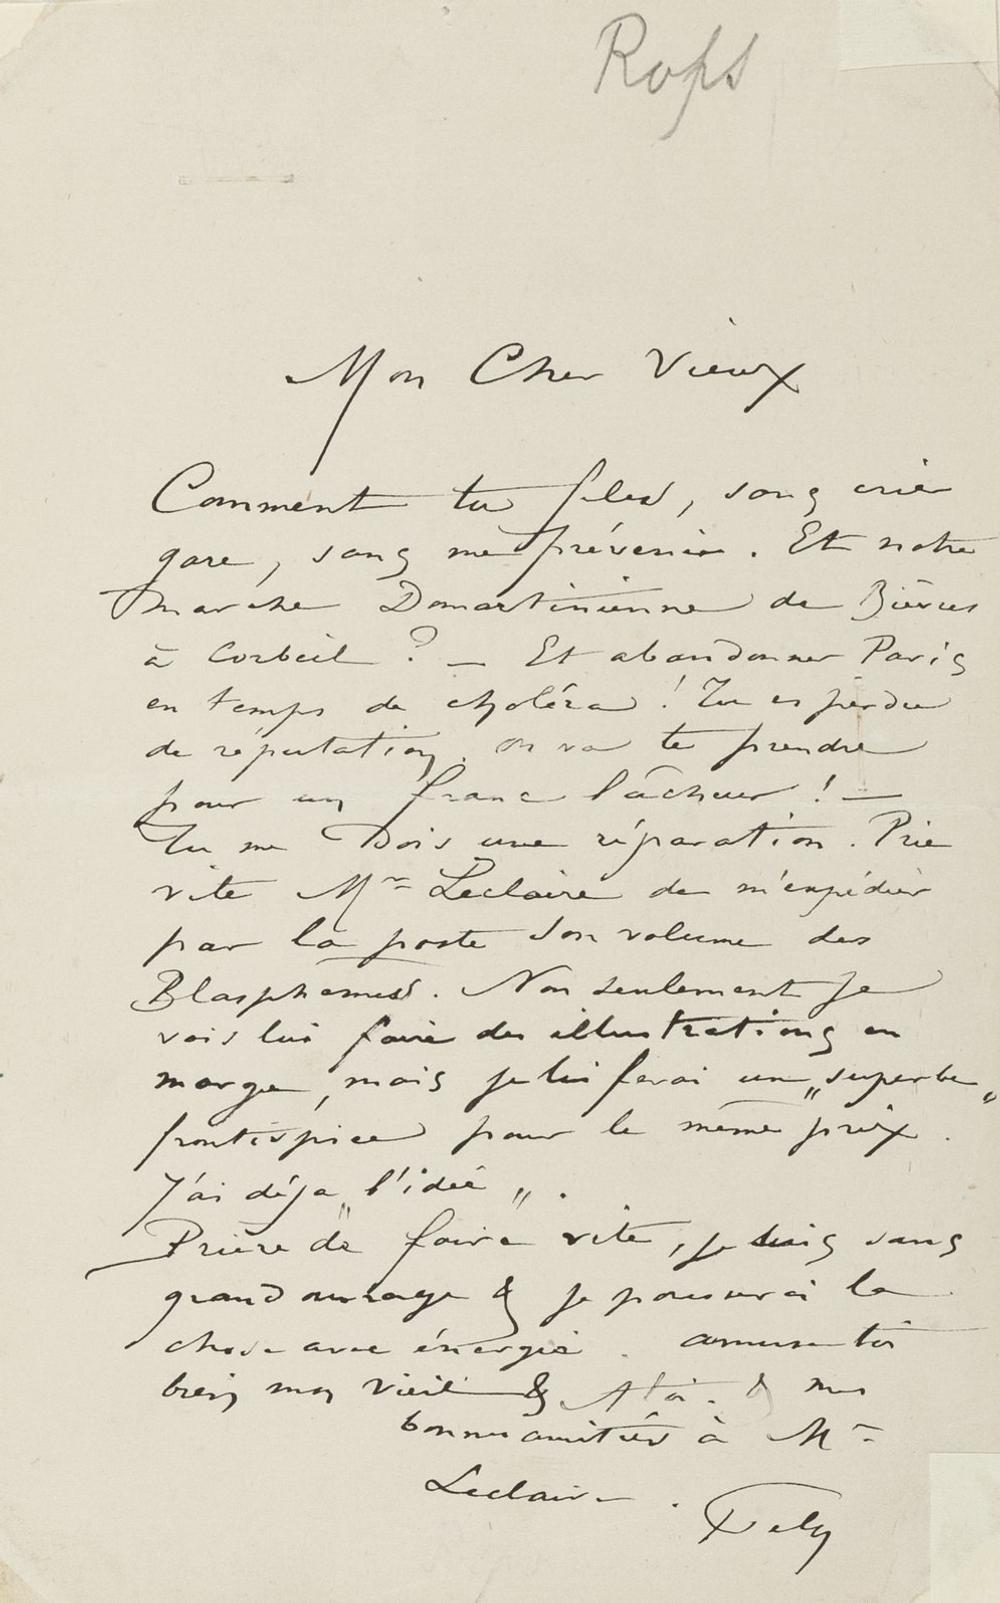 Rops
Mon Cher Vieux
Comment tu files, sans crier
gare, sans me prévenir. Et notre
marche Domartinienne de Bièvres
à Corbeil ? — Et abandonner Paris
en temps de choléra ! Tu es perdu
de réputation. on va te prendre
pour un franc lâcheur ! —
Tu me Dois une réparation. Prie
vite Mr Leclaire de m'expédier
par la poste son volume des
Blasphemes. Non seulement je
vais lui faire des illustrations en
marge, mais je lui ferai un „superbe„
frontispice pour le même prix.
J'ai déja „l'idée„.
Prière de faire vite, je suis sans
grand ouvrage & je pousserai la
chose avec énergie. amuse toi
bien mon vieil & à toi. & mes
bonnes amitiés à Mr
Leclaire.
Fely